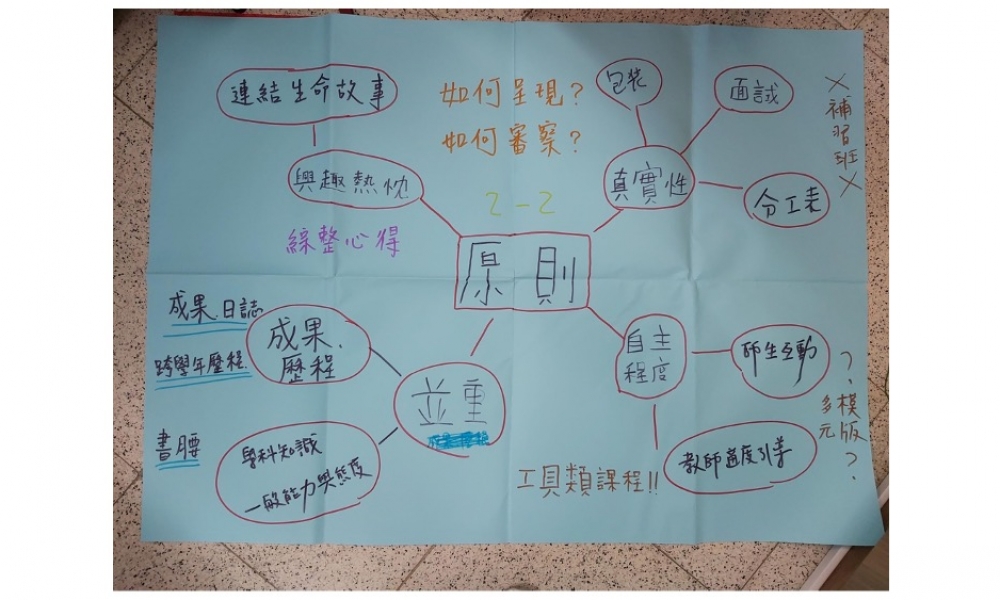 連結生命故事
興趣熱忱
綜整心得
如何呈現?
如何審察?
2-2
原則
包裝
面試
真實性
分工表
X補習班X
成果.日誌
跨學年歷程.
書腰
成果.
歷程
並重
學科知識
一般能力與態度
自主
程度
師生互動
教師適度引導
工具類課程!!
?多元模版?